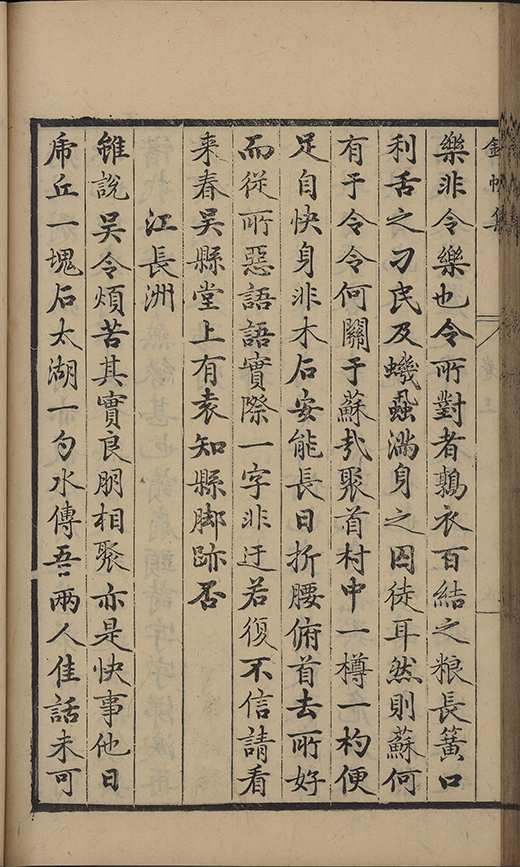 錦帆集
樂非令樂也令所對者鶉衣百結之粮長簧口
利舌之刁民及蟣蝨滿身之囚徒耳然則蘇何
有于令令何關于蘇㢤聚首村中一樽一杓便
足自快身非木石安能長日折腰俯首去所好
而從所惡語語實際一字非迂若復不信請看
来春吴縣堂上有袁知縣脚跡否
江長洲
雖說吴令煩苦其實良朋相聚亦是快事他日
虎丘一塊石太湖一勺水傳吾兩人佳話未可